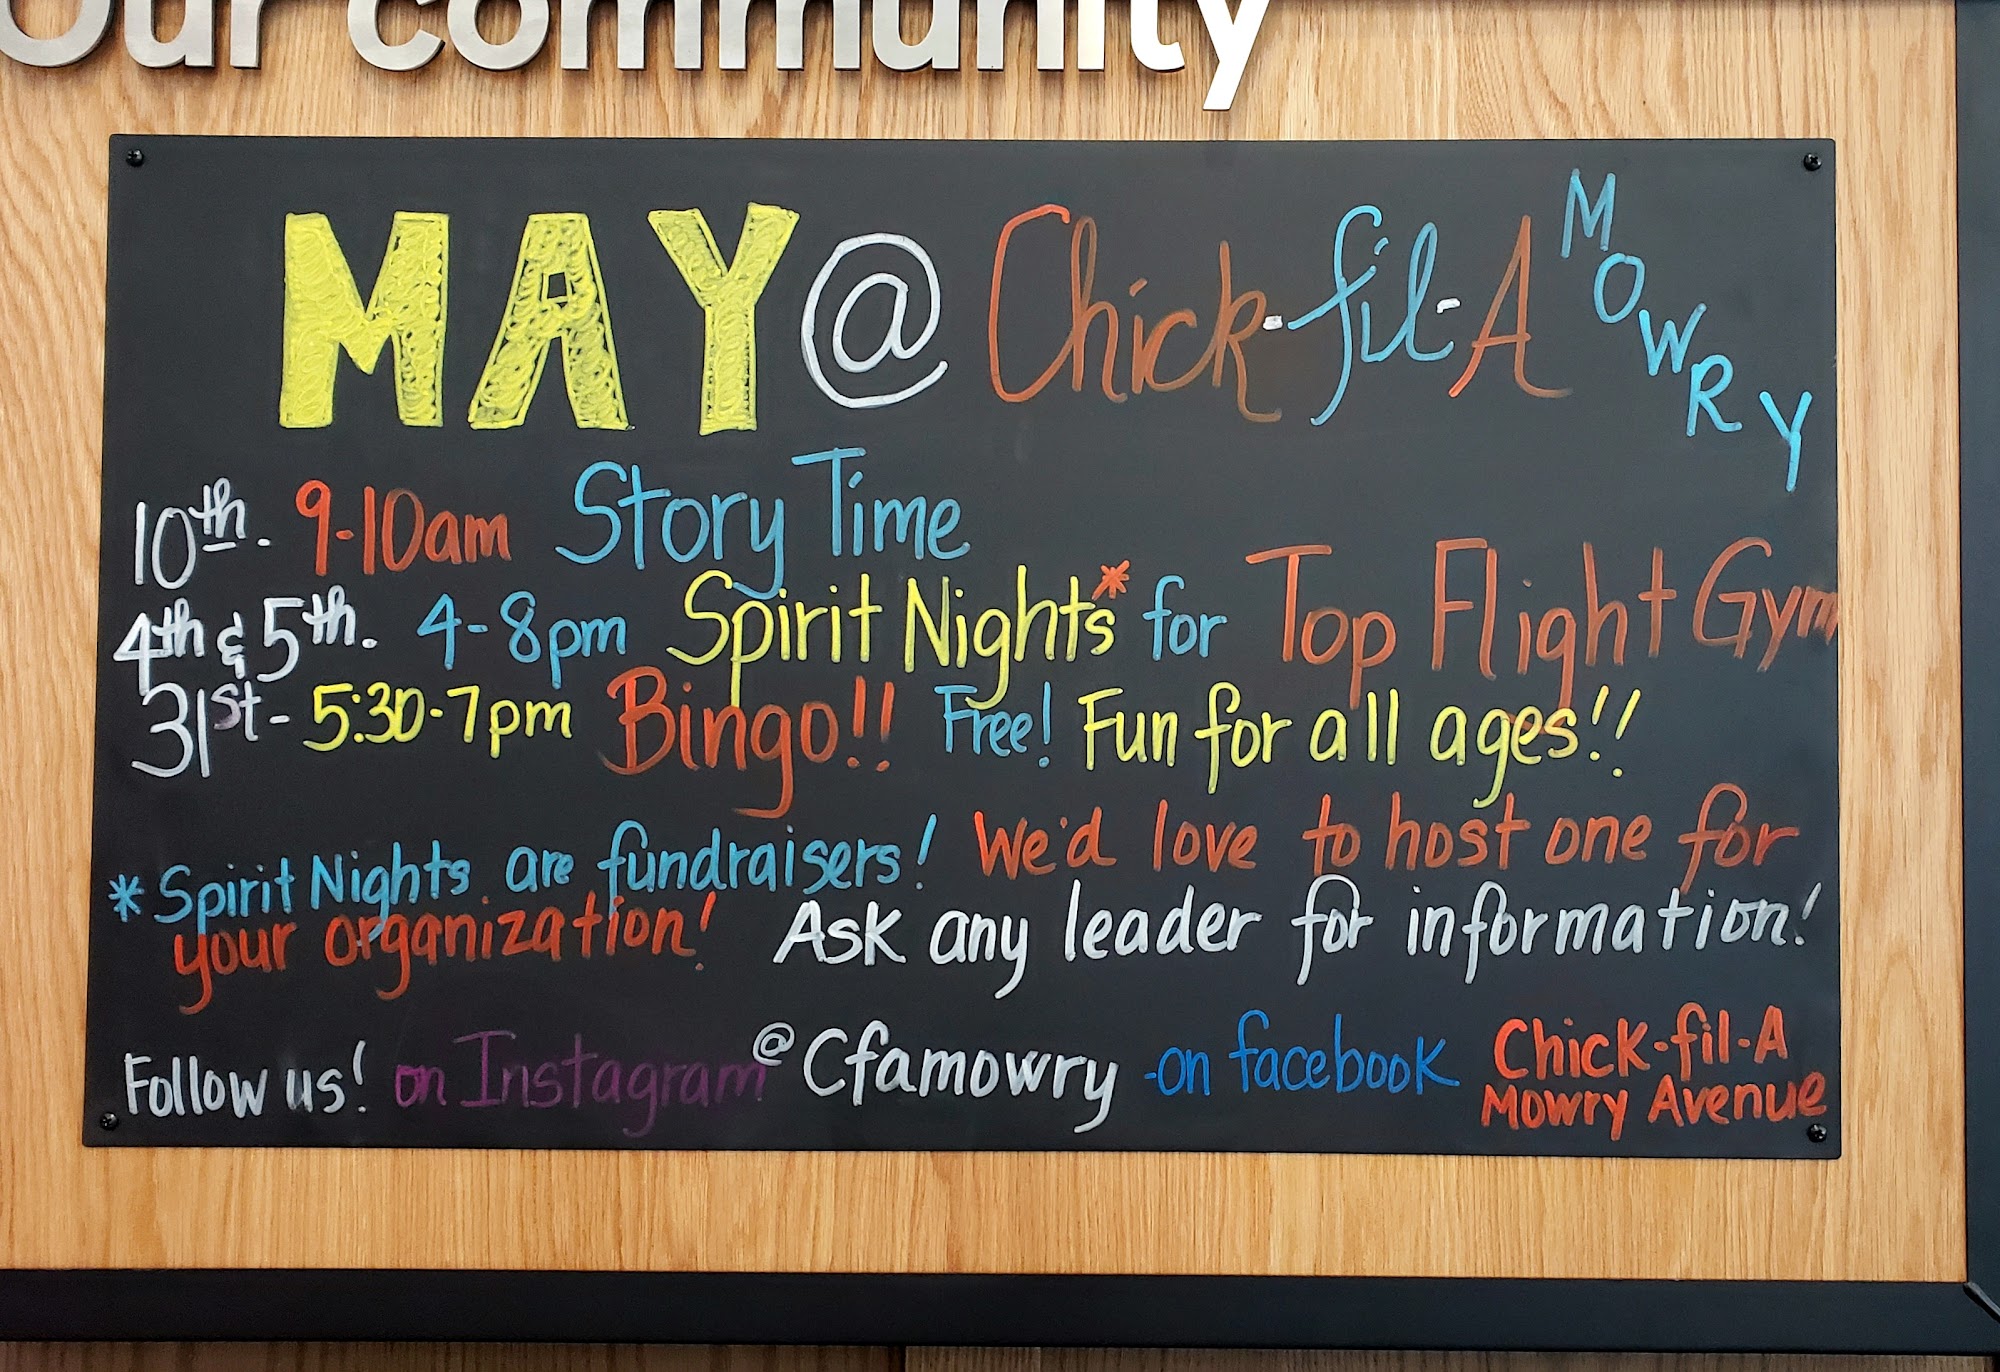 Our community
MAY @ Chick-fil-A MOWRY
10th. 9-10am Story Time
4th & 5th. 4-8pm Spirit Nights* for Top Flight Gym
31st- 5:30-7pm Bingo!! Free! Fun for all ages!!
*Spirit Nights are fundraisers! We'd love to host one for
your organization! Ask any leader for information!
Follow us! on Instagram @Cfamowry -on facebook Chick-fil-A
Mowry Avenue